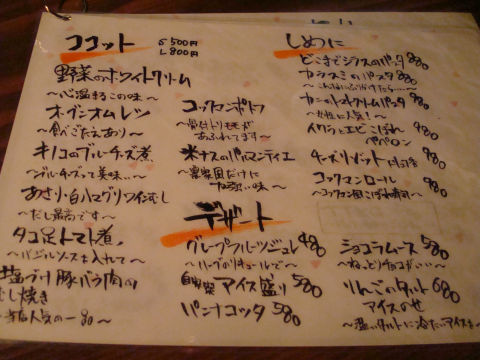 ココット S 500円
L 800円
野菜のホワイトクリーム
～心温まるこの味～
オープンオムレツ
～食べごたえあり～
キノコのブルーチーズ煮
～ブルーチーズって美味い…～
あさり・白ハマグリワインむし
～だし最高です～
タコ足トマト煮
～バジルソースを入れて～
塩づけ豚バラ肉の
むし焼き
コックさんポトフ
～骨付トリモモが
あふれてます～
米ナスのパルマンティエ
～農家風だけに
～
しめつに
どこまでシラスのパスタ 880
カラスミのパスタ 980
カニのトマトクリームパスタ 980
～女性に人気！～
イクラとエビこぼれ 980
ペペロン
チーズリゾット
コックマンロール 980
デザート
グレープフルーツジュレ 480
～ハーブのリキュールで～
自家製アイス盛り 580
パンナコッタ 580
ショコラムース 580
～ねっとりチョコがい…～
りんごのタルト 680
アイスのせ
～温いタルトに冷たいアイスを～